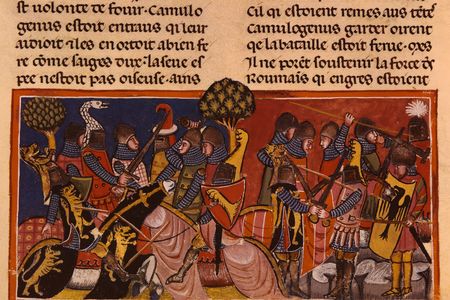 st volonte de fouir. Camulo
genus estoit entraus qi leur
aidoit iles en ortoit a bien fe
re cōme sages dux. la sene es
pee nestoit pas oiseuse. ains
Cil qi estoient remes aus tētes
camulogenus garter oirent
qe la bataille estoit ferue. mes
Il ne porēt soustenir la force d̄s
Roumais qi engres estoient